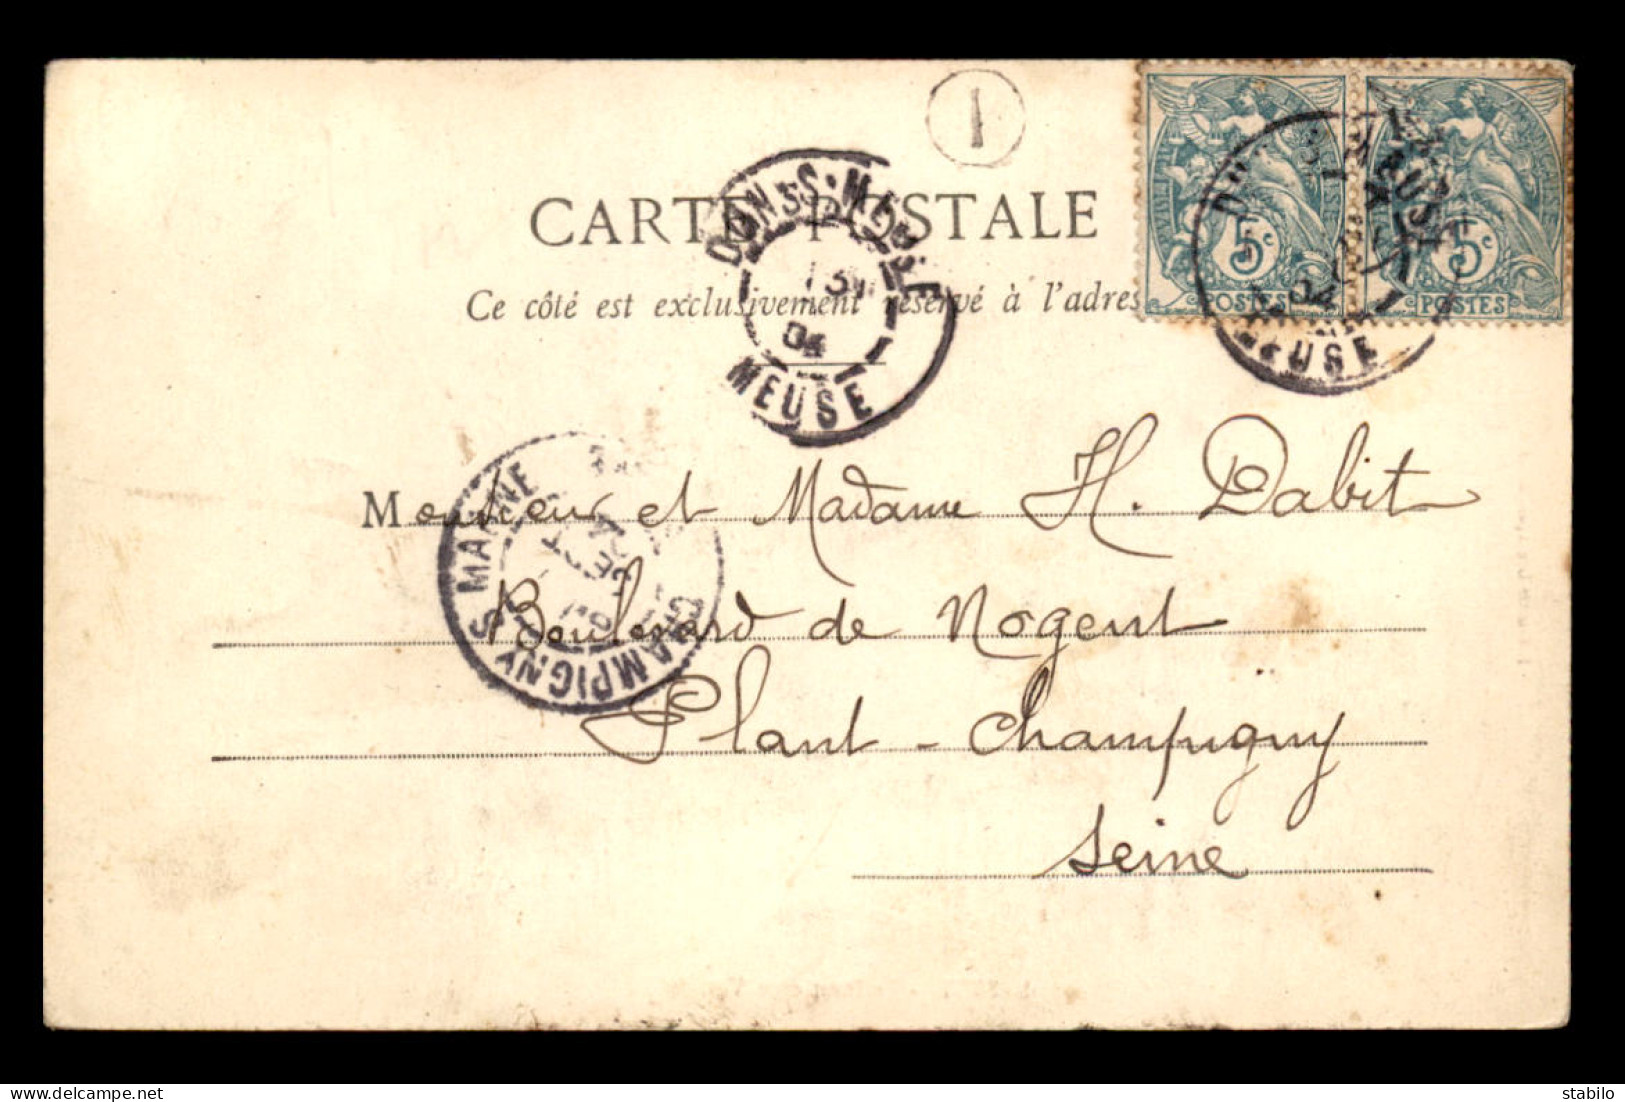 1
CARTE POSTALE
Ce côté est exclusivement réservé à l'adres
5c 5c
POSTES POSTES
DUN-S-MEUSE
04
MEUSE
MEUSE
Monsieur et Madame H. Dabit
CHAMPIGNY S MARNE
Boulevard de Nogent
Plant - Champigny
Seine
delcampe.net
stabilo